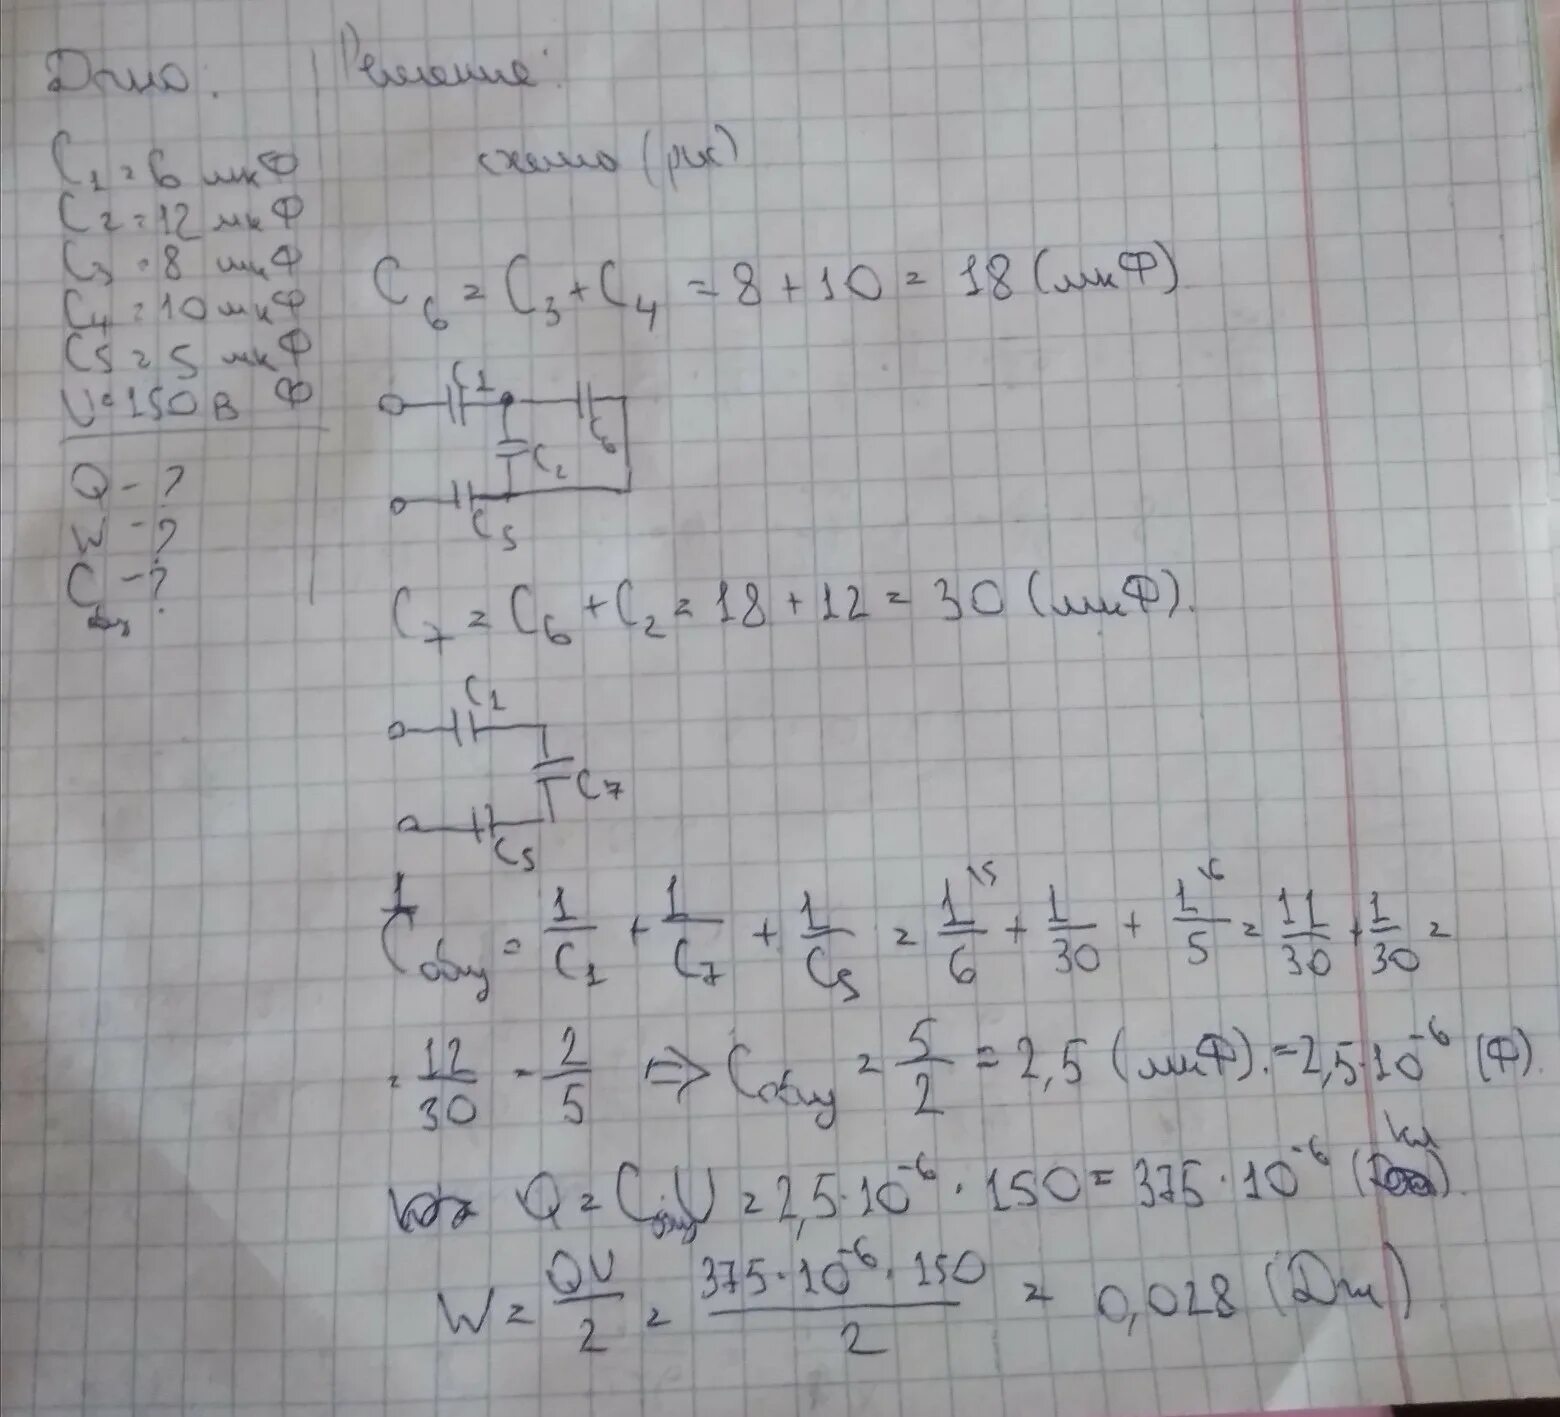 Дано: Решение:
схема (рис)
C₁ = 6 мкФ
C₂ = 12 мкФ
C₃ = 8 мкФ
C₄ = 10 мкФ
C₅ = 5 мкФ
U = 150 В Ф
Q - ?
W - ?
Cобщ - ?
C₆ = C₃ + C₄ = 8 + 10 = 18 (мкФ)
C₁
C₆
C₂
C₅
C₇ = C₆ + C₂ = 18 + 12 = 30 (мкФ).
C₁
C₇
C₅
1/Cобщ = 1/C₁ + 1/C₇ + 1/C₅ = 1/6 \5 + 1/30 + 1/5 \6 = 11/30 + 1/30 =
= 12/30 = 2/5 ⇒ Cобщ = 5/2 = 2,5 (мкФ). = 2,5·10⁻⁶ (Ф).
Q = CобщU = 2,5·10⁻⁶ · 150 = 375·10⁻⁶ (Кл).
W = QU/2 = 375·10⁻⁶·150/2 = 0,028 (Дж)